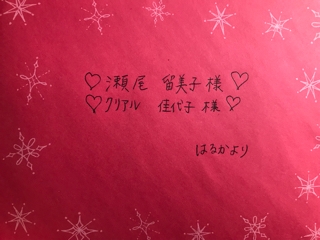 ♡瀬尾 留美子様♡
♡クリアル 佳代子様♡
はるかより